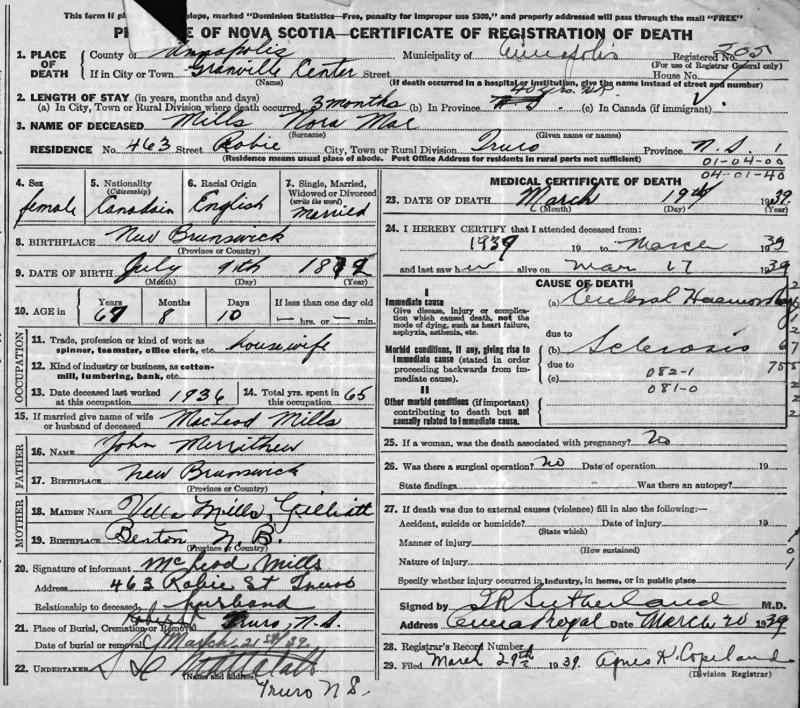 This form if pl slope, marked "Dominion Statistics—Free, penalty for improper use $300," and properly addressed will pass through the mail "FREE"
P E OF NOVA SCOTIA—CERTIFICATE OF REGISTRATION OF DEATH
1. PLACE OF DEATH County of Annapolis Municipality of Annapolis Registered No. 205
(For use of Registrar General only)
If in City or Town Granville Center Street House No.
(Name) (If death occurred in a hospital or institution, give the name instead of street and number)
2. LENGTH OF STAY (in years, months and days)
(a) In City, Town or Rural Division where death occurred 3 months (b) In Province 40 yrs. (c) In Canada (if immigrant)
3. NAME OF DECEASED Mills Nora Mae
(Surname) (Given name or names)
RESIDENCE No. 463 Street Robie City, Town or Rural Division Truro Province N.S. 1
(Residence means usual place of abode. Post Office Address for residents in rural parts not sufficient) 01-04-00
04-01-40
4. Sex female
5. Nationality (Citizenship) Canadain
6. Racial Origin English
7. Single, Married, Widowed or Divorced (write the word) married
8. BIRTHPLACE New Brunswick
(Province or Country)
9. DATE OF BIRTH July 9th
(Month) (Day) (Year)
10. AGE in Years Months Days If less than one day old
8 10 — hrs. or — min.
OCCUPATION
11. Trade, profession or kind of work as spinner, teamster, office clerk, etc. housewife
12. Kind of industry or business, as cotton-mill, lumbering, bank, etc.
13. Date deceased last worked at this occupation 1936 14. Total yrs. spent in this occupation 65
15. If married give name of wife or husband of deceased MacLeod Mills
FATHER
16. NAME John Merrithew
17. BIRTHPLACE New Brunswick
(Province or Country)
MOTHER
18. MAIDEN NAME Mills
19. BIRTHPLACE Benton N.B.
(Province or Country)
20. Signature of informant McLeod Mills
Address 463 Robie St Truro
Relationship to deceased husband
21. Place of Burial, Cremation or Removal Truro, N.S.
Date of burial or removal March 21st/39
22. UNDERTAKER
(Name and address)
Truro N S.
MEDICAL CERTIFICATE OF DEATH
23. DATE OF DEATH March 19th 1939
(Month) (Day) (Year)
24. I HEREBY CERTIFY that I attended deceased from:
1939 19 to March 39
and last saw her alive on Mar 17 1939
CAUSE OF DEATH
I
Immediate cause (a) Cerebral Haemorrhage
Give disease, injury or complication which caused death, not the mode of dying, such as heart failure, asphyxia, asthenia, etc.
due to
Morbid conditions, if any, giving rise to immediate cause (stated in order proceeding backwards from immediate cause). (b) Sclerosis
due to
(c) 082-1
081-0
II
Other morbid conditions (if important) contributing to death but not causally related to immediate cause.
25. If a woman, was the death associated with pregnancy? No
26. Was there a surgical operation? No Date of operation 19
State findings Was there an autopsy?
27. If death was due to external causes (violence) fill in also the following:—
Accident, suicide or homicide? Date of injury 19
(State which)
Manner of injury
(How sustained)
Nature of injury
Specify whether injury occurred in industry, in home, or in public place
Signed by Sutherland M.D.
Address Date March 20 1939
28. Registrar's Record Number
29. Filed March 29th 1939. Agnes K. Copeland
(Division Registrar)